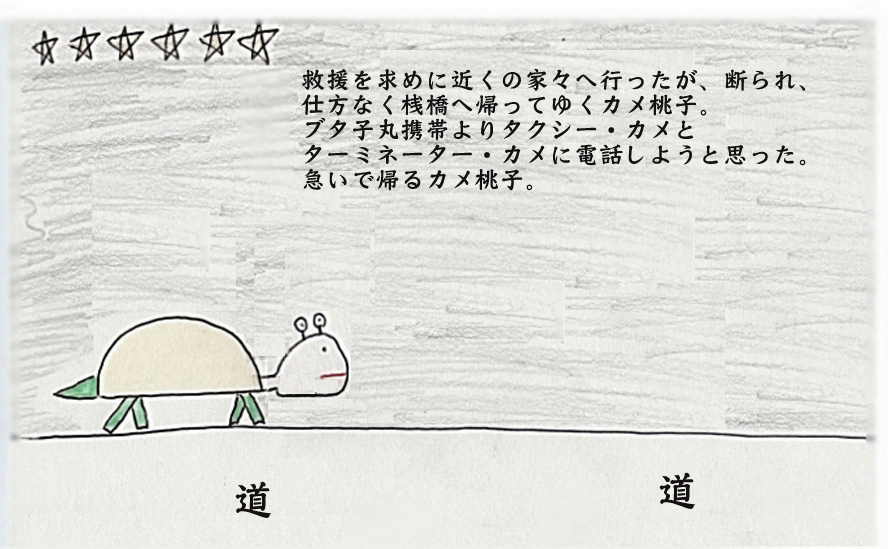 救援を求めに近くの家々へ行ったが、断られ、
仕方なく桟橋へ帰ってゆくカメ桃子。
ブタ子丸携帯よりタクシー・カメと
ターミネーター・カメに電話しようと思った。
急いで帰るカメ桃子。
道
道